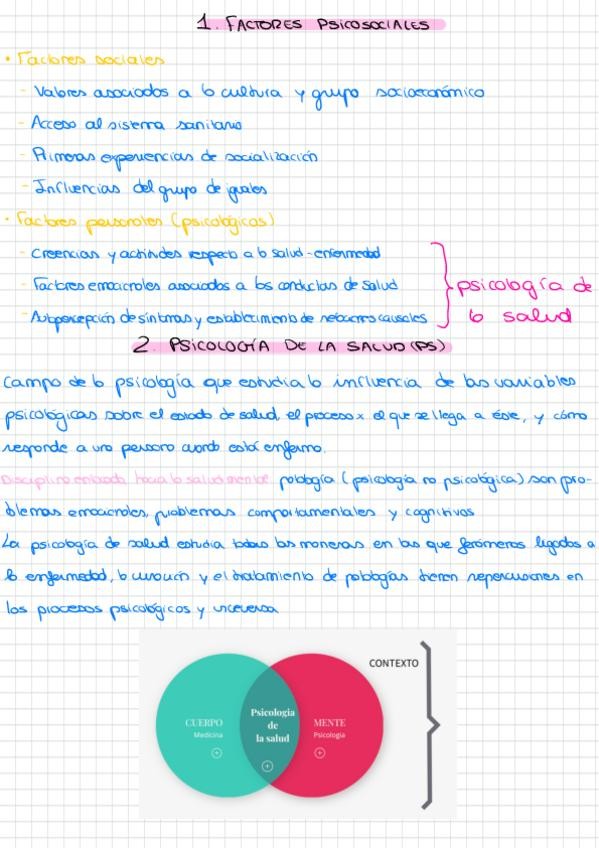 1. FACTORES PSICOSOCIALES
• Factores sociales
- Valores asociados a la cultura y grupo socioeconómico
- Acceso al sistema sanitario
- Primeras experiencias de socialización
- Influencias del grupo de iguales
• Factores personales (psicológicos)
- Creencias y actitudes respecto a la salud-enfermedad
- Factores emocionales asociados a las conductas de salud
- Autopercepción de síntomas y establecimiento de relaciones causales
psicología de
la salud
2. PSICOLOGÍA DE LA SALUD (PS)
Campo de la psicología que estudia la influencia de las variables
psicológicas sobre el estado de salud, el proceso x el que se llega a éste, y cómo
responde a una persona cuando está enfermo.
Disciplina enfocada hacia la salud mental: patología (psicología no psicológica) son pro-
blemas emocionales, problemas comportamentales y cognitivos
La psicología de salud estudia todas las maneras en las que fenómenos ligados a
la enfermedad, la curación y el tratamiento de patologías tienen repercusiones en
los procesos psicológicos y viceversa
CONTEXTO
CUERPO
Medicina
Psicología
de
la salud
MENTE
Psicología